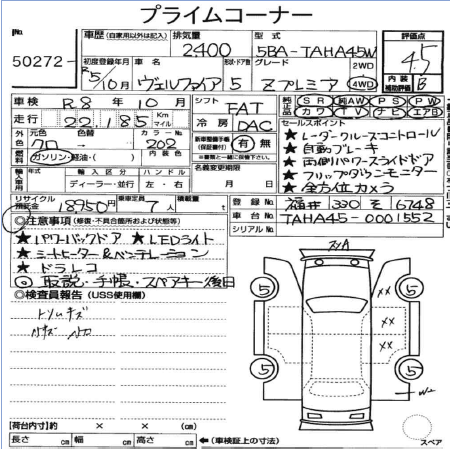 プライムコーナー
No.
50272-
車歴 (自家用以外は記入) 排気量 型式 評価点
2400 5BA-TAHA45W 4.5
初度登録年月 車名 形状・ドア数 グレード 2WD 内装
R5/10月 ヴェルファイア 5 Zプレミア 4WD 補助評価 B
車検 R8年10月 シフト FAT 純正品 SR 純AW PS PW
走行 22,185 Km マイル 冷房 DAC カワ TV ナビ エアB
外色 元色 色替 カラーNo. 新車整備手帳 (保証書付) 有 無 セールスポイント
クロ 202 ※書類と一緒に保管下さい
★レーダークルーズコントロール
燃料 ガソリン・軽油・( ) 内装色 名義変更期限 ★自動ブレーキ
★両側パワースライドドア
年式 輸入区分 ハンドル ★フリップダウンモニター
ディーラー・並行 左・右 月 日 ★全方位カメラ
リサイクル預託金 18950円 乗車定員 7人 積載量 t
登録No. 福井 330 そ 6748
車台No. TAHA45-0001552
シリアルNo.
◎注意事項 (修復・不具合箇所および状態等)
★パワーバックドア ★LEDライト
★シートヒーター&ベンチレーション
★ドラレコ
◎取説・手帳・スペアキー後日
◎検査員報告 (USS使用欄)
トリムキズ
スリA
5 5
xx
xx
5 5
W2
スペア
【荷台内寸】約 × × (cm)
長さ cm 幅 cm 高さ cm ←(車検証上の寸法)